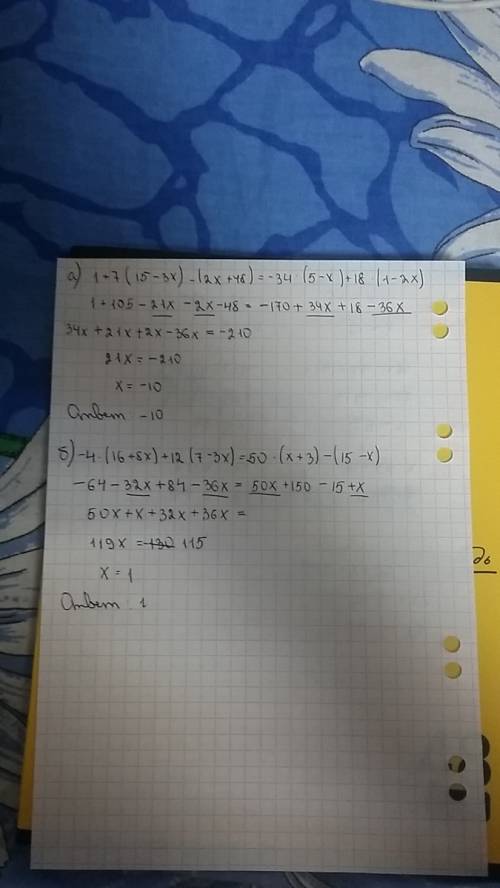 а) 1+7(15-3x)-(2x+48)=-34(5-x)+18(1-2x)
1+105-21x-2x-48=-170+34x+18-36x
34x+21x+2x-36x=-210
21x=-210
x=-10
Ответ -10
б)-4·(16+8x)+12(7-3x)=50·(x+3)-(15-x)
-64-32x+84-36x=50x+150-15+x
50x+x+32x+36x=
119x=-130 115
x=1
Ответ: 1